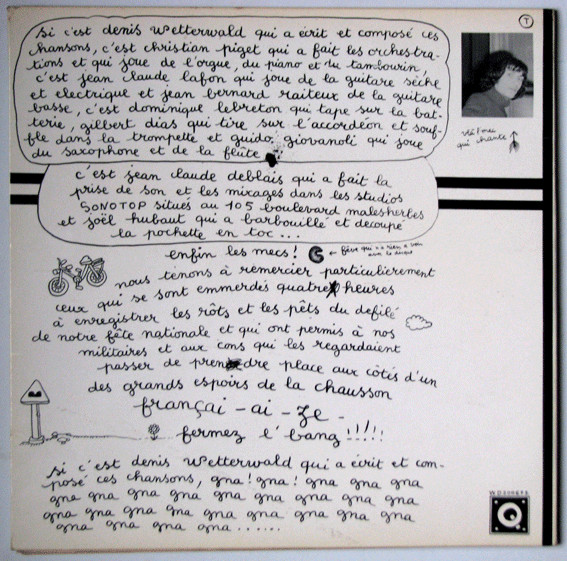 T
si c'est denis wetterwald qui a écrit et composé ces
chansons, c'est christian piget qui a fait les orchestra-
tions et qui joue de l'orgue, du piano et du tambourin,
c'est jean claude lafon qui joue de la guitare sèche
et electrique et jean bernard raiteux de la guitare
basse, c'est dominique lebreton qui tape sur la bat-
terie, gilbert dias qui tire sur l'accordéon et souf-
fle dans la trompette et guido giovanoli qui joue
du saxophone et de la flûte
qui chante
c'est jean claude deblais qui a fait la
prise de son et les mixages dans les studios
SONOTOP situés au 105 boulevard malesherbes
et joël hubaut qui a barbouillé et découpé
la pochette en toc...
enfin les mecs! ← fève qui n'a rien à voir
avec le disque
nous tenons à remercier particulièrement
ceux qui se sont emmerdés quatre heures
à enregistrer les rôts et les pêts du défilé
de notre fête nationale et qui ont permis à nos
militaires et aux cons qui les regardaient
passer de prendre place aux côtés d'un
des grands espoirs de la chausson
françai-ai-ze-
fermez l'bang!!!!!
si c'est denis wetterwald qui a écrit et com-
posé ces chansons, gna! gna! gna gna gna
gna gna gna gna gna gna gna gna gna
gna gna gna gna gna gna gna gna gna
gna gna gna gna......
Q